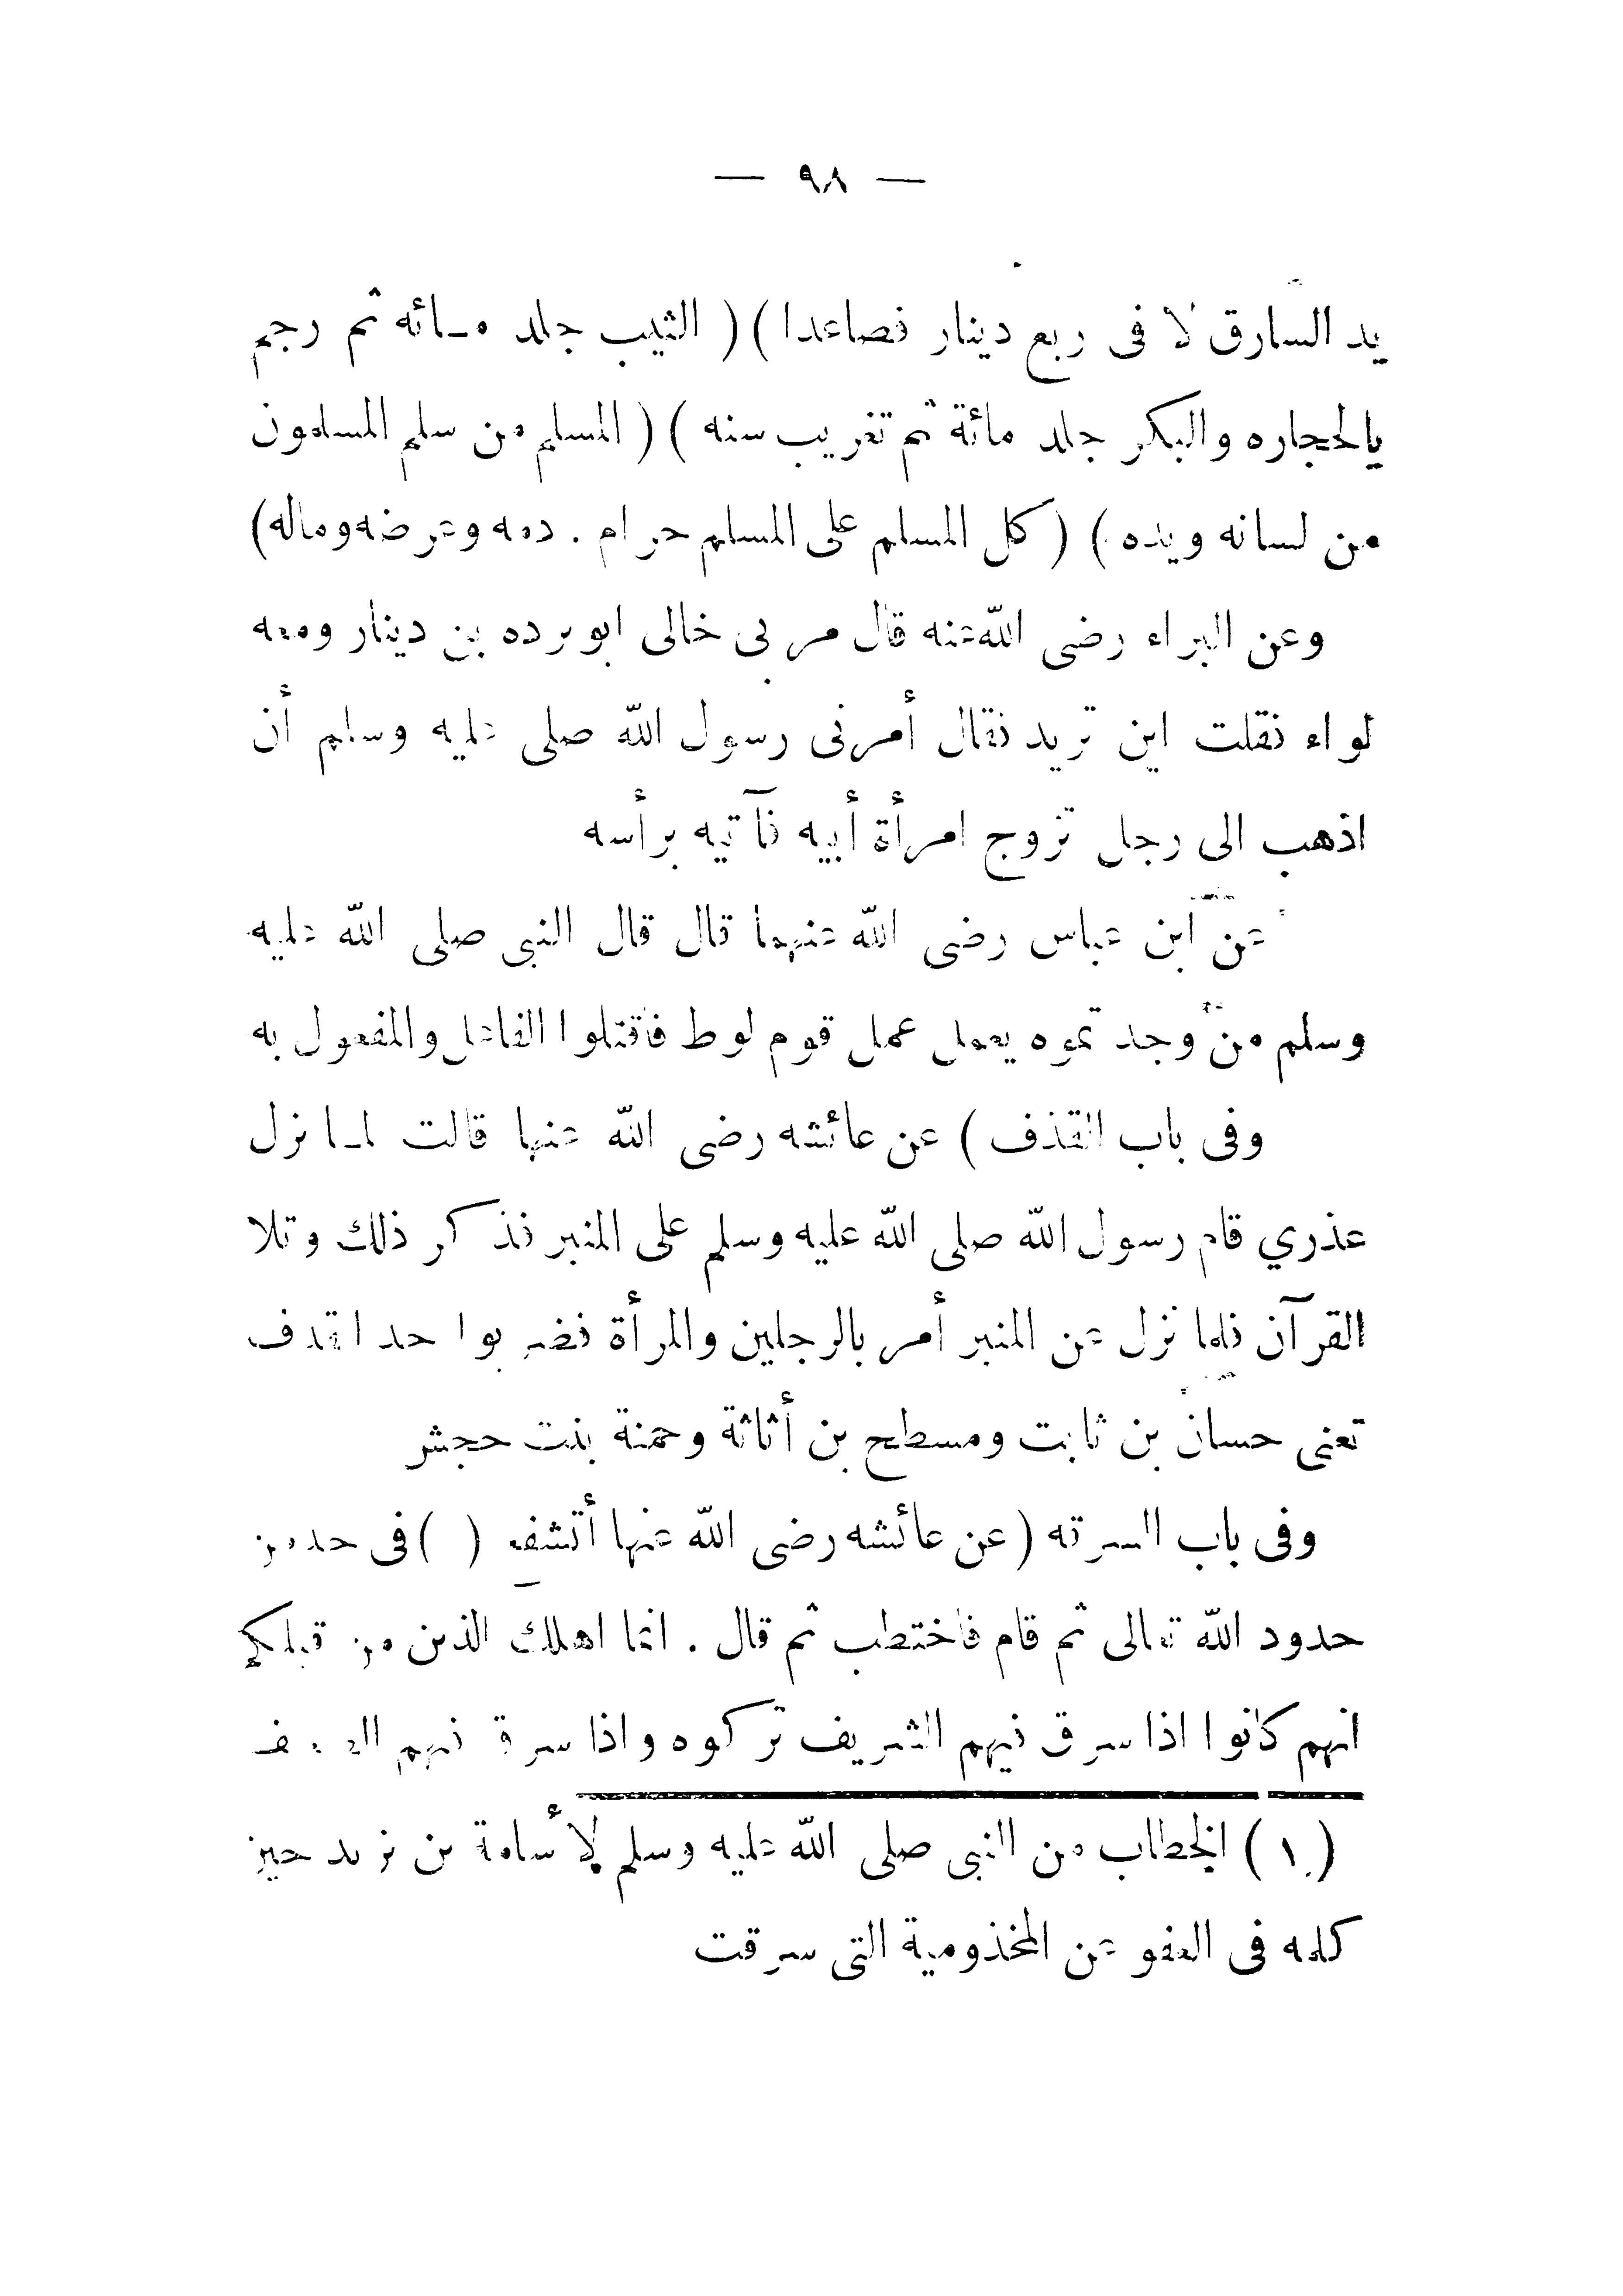 — ٩٨ —
يد السارق لا فى ربع دينار فصاعدا ) ( الثيب جلد مـائه ثم رجم
بالحجاره والبكر جلد مائة ثم تغريب سنه ) ( المسلم من سلم المسلمون
من لسانه ويده ) ( كل المسلم على المسلم حرام . دمه وعرضه وماله )
وعن البراء رضى الله عنه قال مر بى خالى ابو برده بن دينار ومعه
لواء فقلت اين تريد فقال أمرنى رسول الله صلى عليه وسلم أن
اذهب الى رجل تزوج امرأة أبيه فآتيه برأسه
عن ابن عباس رضى الله عنهما قال قال النبى صلى الله عليه
وسلم من وجدتموه يعمل عمل قوم لوط فاقتلوا الفاعل والمفعول به
وفى باب القذف ) عن عائشه رضى الله عنها قالت لـا نزل
عذري قام رسول الله صلى الله عليه وسلم على المنبر فذكر ذلك وتلا
القرآن فلما نزل عن المنبر أمر بالرجلين والمرأة فضربوا حد القذف
تعنى حسان بن ثابت ومسطح بن أثاثة وحمنة بنت حجش
وفى باب السرقه ( عن عائشه رضى الله عنها أتشفع ( ) فى حد من
حدود الله تعالى ثم قام فاختطب ثم قال . انما اهلك الذين من قبلكم
انهم كانوا اذا سرق فيهم الشريف تركوه واذا سرق فيهم الضعيف
( ١ ) الخطاب من النبى صلى الله عليه وسلم لأسامة بن زيد حين
كلمه فى العفو عن المخذومية التى سرقت